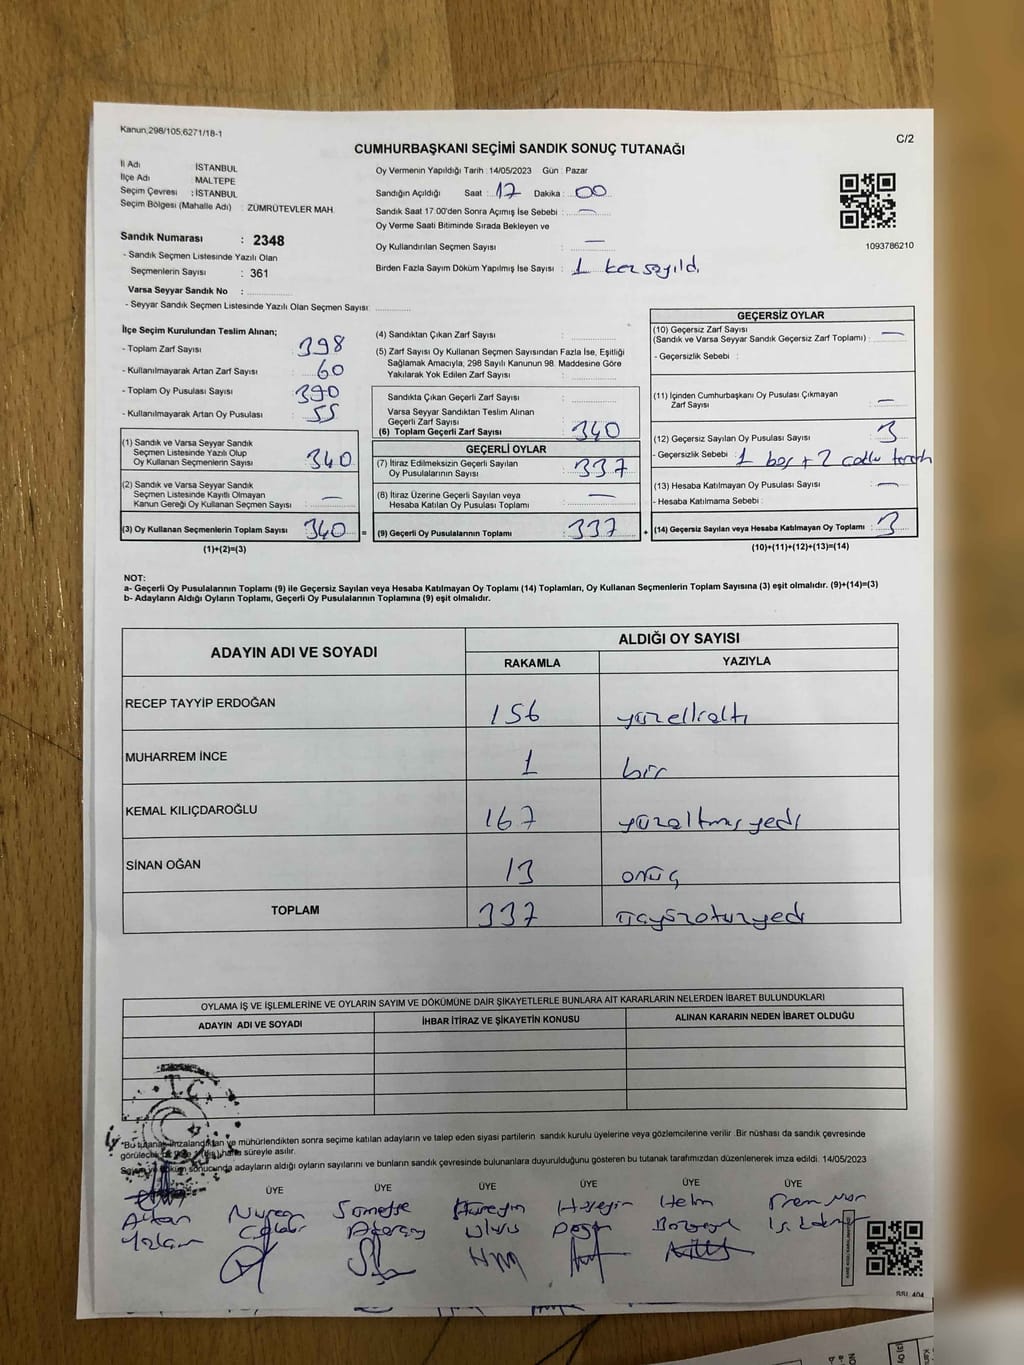 Kanun;298/105;6271/18-1
C/2
CUMHURBAŞKANI SEÇİMİ SANDIK SONUÇ TUTANAĞI
İl Adı : İSTANBUL
İlçe Adı : MALTEPE
Seçim Çevresi : İSTANBUL
Seçim Bölgesi (Mahalle Adı) : ZÜMRÜTEVLER MAH.
Sandık Numarası : 2348
- Sandık Seçmen Listesinde Yazılı Olan
Seçmenlerin Sayısı : 361
Varsa Seyyar Sandık No :
- Seyyar Sandık Seçmen Listesinde Yazılı Olan Seçmen Sayısı:
Oy Vermenin Yapıldığı Tarih : 14/05/2023 Gün : Pazar
Sandığın Açıldığı Saat : 17 Dakika : 00
Sandık Saat 17.00'den Sonra Açımış İse Sebebi : —
Oy Verme Saati Bitiminde Sırada Bekleyen ve
Oy Kullandırılan Seçmen Sayısı : —
Birden Fazla Sayım Döküm Yapılmış İse Sayısı : 1 kez sayıldı
1093786210
İlçe Seçim Kurulundan Teslim Alınan;
- Toplam Zarf Sayısı : 398
- Kullanılmayarak Artan Zarf Sayısı : 60
- Toplam Oy Pusulası Sayısı : 390
- Kullanılmayarak Artan Oy Pusulası : 55
(1) Sandık ve Varsa Seyyar Sandık
Seçmen Listesinde Yazılı Olup
Oy Kullanan Seçmenlerin Sayısı : 340
(2) Sandık ve Varsa Seyyar Sandık
Seçmen Listesinde Kayıtlı Olmayan
Kanun Gereği Oy Kullanan Seçmen Sayısı : —
(3) Oy Kullanan Seçmenlerin Toplam Sayısı : 340 =
(1)+(2)=(3)
(4) Sandıktan Çıkan Zarf Sayısı :
(5) Zarf Sayısı Oy Kullanan Seçmen Sayısından Fazla İse, Eşitliği
Sağlamak Amacıyla, 298 Sayılı Kanunun 98. Maddesine Göre
Yakılarak Yok Edilen Zarf Sayısı :
Sandıkta Çıkan Geçerli Zarf Sayısı :
Varsa Seyyar Sandıktan Teslim Alınan
Geçerli Zarf Sayısı :
(6) Toplam Geçerli Zarf Sayısı : 340
GEÇERLİ OYLAR
(7) İtiraz Edilmeksizin Geçerli Sayılan
Oy Pusulalarının Sayısı : 337
(8) İtiraz Üzerine Geçerli Sayılan veya
Hesaba Katılan Oy Pusulası Toplamı : —
(9) Geçerli Oy Pusulalarının Toplamı : 337 +
GEÇERSİZ OYLAR
(10) Geçersiz Zarf Sayısı
(Sandık ve Varsa Seyyar Sandık Geçersiz Zarf Toplamı) : —
- Geçersizlik Sebebi :
(11) İçinden Cumhurbaşkanı Oy Pusulası Çıkmayan
Zarf Sayısı : —
(12) Geçersiz Sayılan Oy Pusulası Sayısı : 3
- Geçersizlik Sebebi : 1 boş + 2
(13) Hesaba Katılmayan Oy Pusulası Sayısı : —
- Hesaba Katılmama Sebebi :
(14) Geçersiz Sayılan veya Hesaba Katılmayan Oy Toplamı : 3
(10)+(11)+(12)+(13)=(14)
NOT:
a- Geçerli Oy Pusulalarının Toplamı (9) ile Geçersiz Sayılan veya Hesaba Katılmayan Oy Toplamı (14) Toplamları, Oy Kullanan Seçmenlerin Toplam Sayısına (3) eşit olmalıdır. (9)+(14)=(3)
b- Adayların Aldığı Oyların Toplamı, Geçerli Oy Pusulalarının Toplamına (9) eşit olmalıdır.
ADAYIN ADI VE SOYADI
ALDIĞI OY SAYISI
RAKAMLA YAZIYLA
RECEP TAYYİP ERDOĞAN 156 yüzellialtı
MUHARREM İNCE 1 bir
KEMAL KILIÇDAROĞLU 167 yüzaltmışyedi
SİNAN OĞAN 13 onüç
TOPLAM 337 üçyüzotuzyedi
OYLAMA İŞ VE İŞLEMLERİNE VE OYLARIN SAYIM VE DÖKÜMÜNE DAİR ŞİKAYETLERLE BUNLARA AİT KARARLARIN NELERDEN İBARET BULUNDUKLARI
ADAYIN ADI VE SOYADI İHBAR İTİRAZ VE ŞİKAYETİN KONUSU ALINAN KARARIN NEDEN İBARET OLDUĞU
T.C.
*Bu tutanak imzalandıktan ve mühürlendikten sonra seçime katılan adayların ve talep eden siyasi partilerin sandık kurulu üyelerine veya gözlemcilerine verilir .Bir nüshası da sandık çevresinde
süreyle asılır.
sonucunda adayların aldığı oyların sayılarını ve bunların sandık çevresinde bulunanlara duyurulduğunu gösteren bu tutanak tarafımızdan düzenlenerek imza edildi. 14/05/2023
ÜYE ÜYE ÜYE ÜYE ÜYE ÜYE
Hüseyin